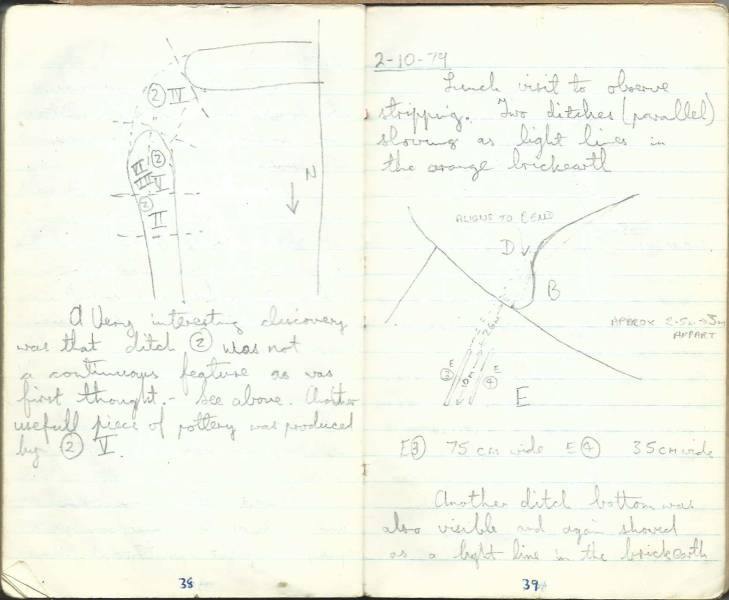 ② IV
VI
② 
III V
②
II
N
A Very interesting discovery
was that ditch ② was not
a continuous feature as was
first thought. - See above. Another
usefull piece of pottery was produced
by ② V.
38
2-10-79
Lunch visit to observe
stripping. Two ditches (parallel)
showing as light lines in
the orange brickearth
ALIGNS TO BEND
D
B
APPROX 2.5m-3m
APPART
26m
E
③
10m
E
④
E
E③ 75 cm wide E④ 35cm wide
Another ditch bottom was
also visible and again showed
as a light line in the brickearth
39